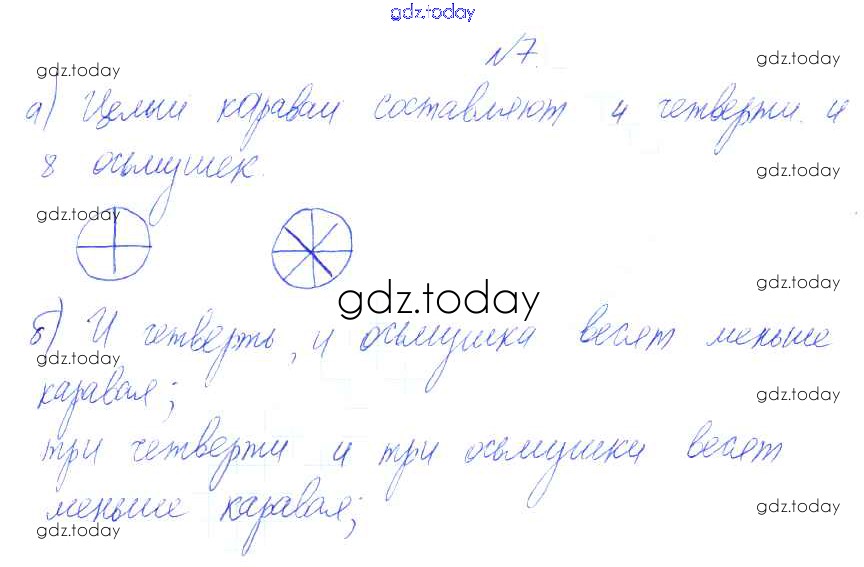 gdz.today
№7.
gdz.today gdz.today
а) Целый каравай составляют 4 четверти и
8 осьмушек.
gdz.today
gdz.today
gdz.today
gdz.today
б) И четверть, и осьмушка весят меньше
gdz.today
каравая;
gdz.today
три четверти и три осьмушки весят
меньше каравая;
gdz.today
gdz.today